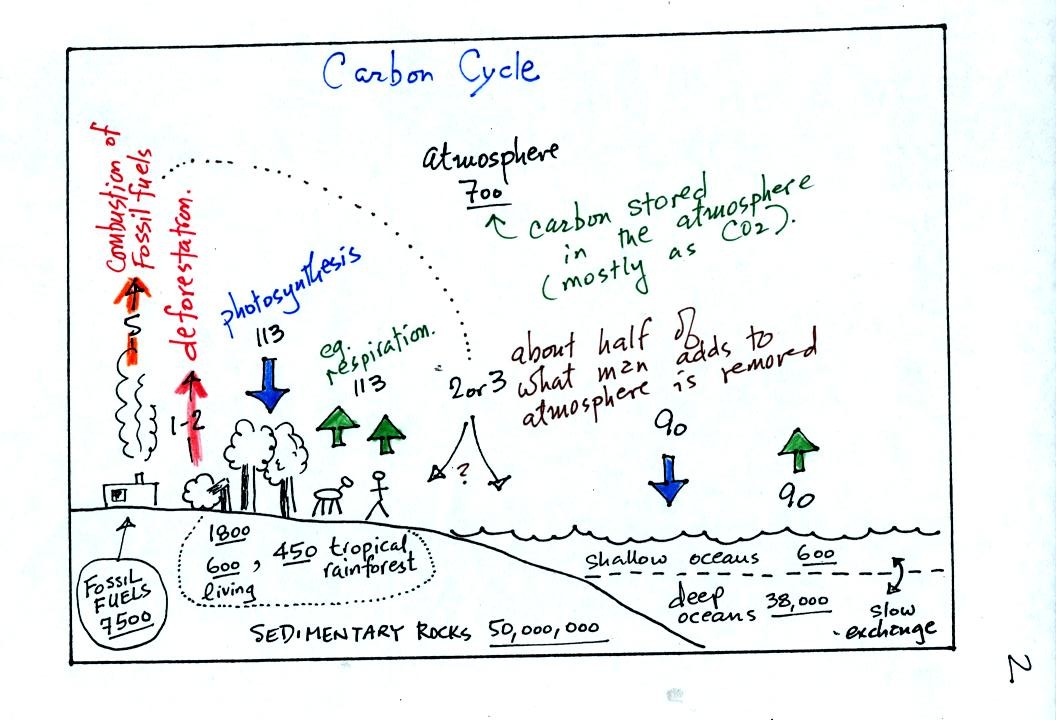 Carbon Cycle
Combustion of
Fossil fuels
5
deforestation.
1-2
photosynthesis
113
eg.
respiration.
113
atmosphere
700
carbon stored
in the atmosphere
(mostly as CO2).
2 or 3
?
about half of
what man adds to
atmosphere is removed
90
90
FOSSIL
FUELS
7500
1800
600, 450 tropical
rainforest
living
SEDIMENTARY ROCKS 50,000,000
shallow oceans 600
deep
oceans 38,000
slow
exchange
2